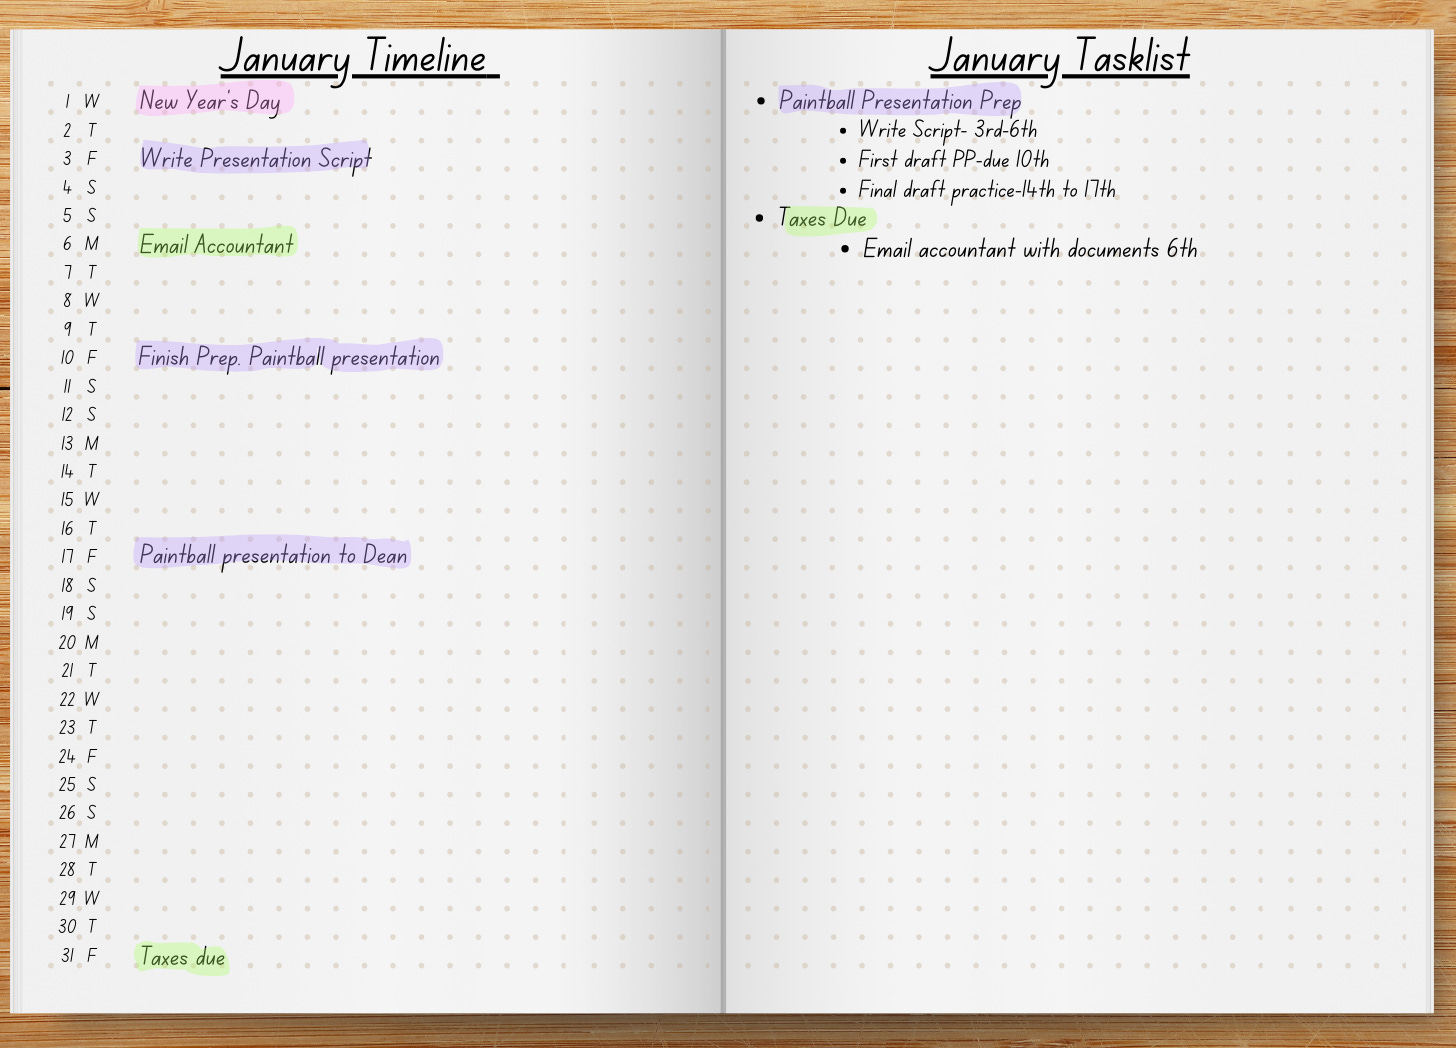 January Timeline
1 W New Year's Day
2 T
3 F Write Presentation Script
4 S
5 S
6 M Email Accountant
7 T
8 W
9 T
10 F Finish Prep. Paintball presentation
11 S
12 S
13 M
14 T
15 W
16 T
17 F Paintball presentation to Dean
18 S
19 S
20 M
21 T
22 W
23 T
24 F
25 S
26 S
27 M
28 T
29 W
30 T
31 F Taxes due
January Tasklist
• Paintball Presentation Prep
• Write Script- 3rd-6th
• First draft PP-due 10th
• Final draft practice-14th to 17th
• Taxes Due
• Email accountant with documents 6th